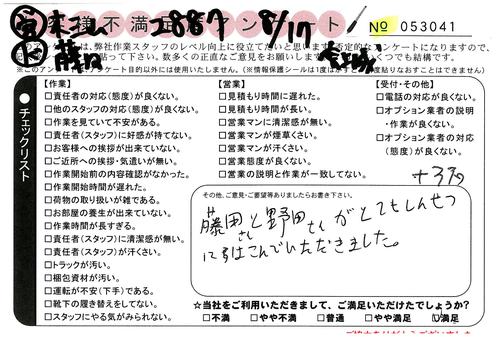 お客様不満足アンケート
2887 8/17
No 053041
藤田
このアンケートは、弊社作業スタッフのレベル向上に役立てたいと思います。否定的なアンケートになりますので、
貼って下さい。数多くの正直なご意見をお願いします。
※このアンケートは、アンケート目的以外には使用いたしません。(※情報保護シールは1度はがすと再度貼りなおすことはできません)
チェックリスト
【作業】
□責任者の対応(態度)が良くない。
□他のスタッフの対応(態度)が良くない。
□作業を見ていて不安がある。
□責任者(スタッフ)に好感が持てない。
□お客様への挨拶が出来ていない。
□ご近所への挨拶・気遣いが無い。
□作業開始前の内容確認がなかった。
□作業開始時間が遅れた。
□荷物の取り扱いが雑である。
□お部屋の養生が出来ていない。
□作業時間が長すぎる。
□責任者(スタッフ)に清潔感が無い。
□責任者(スタッフ)が汗くさい。
□トラックが汚い。
□梱包資材が汚い。
□運転が不安(下手)である。
□靴下の履き替えをしてない。
□スタッフにやる気がみられない。
【営業】
□見積もり時間に遅れた。
□見積もり時間が長い。
□営業マンに清潔感が無い。
□営業マンが煙草くさい。
□営業マンが汗くさい。
□営業態度が良くない。
□営業の説明と作業が一致してない。
【受付・その他】
□電話の対応が良くない。
□オプション業者の説明
・作業が良くない。
□オプション業者の対応
(態度)が良くない。
+3
その他、ご意見・ご要望等ありましたらお書き下さい。
藤田さんと野田さんがとてもしんせつ
にはこんでいただきました。
☆当社をご利用いただきまして、ご満足いただけたでしょうか?
□不満 □やや不満 □普通 □やや満足 ☑満足